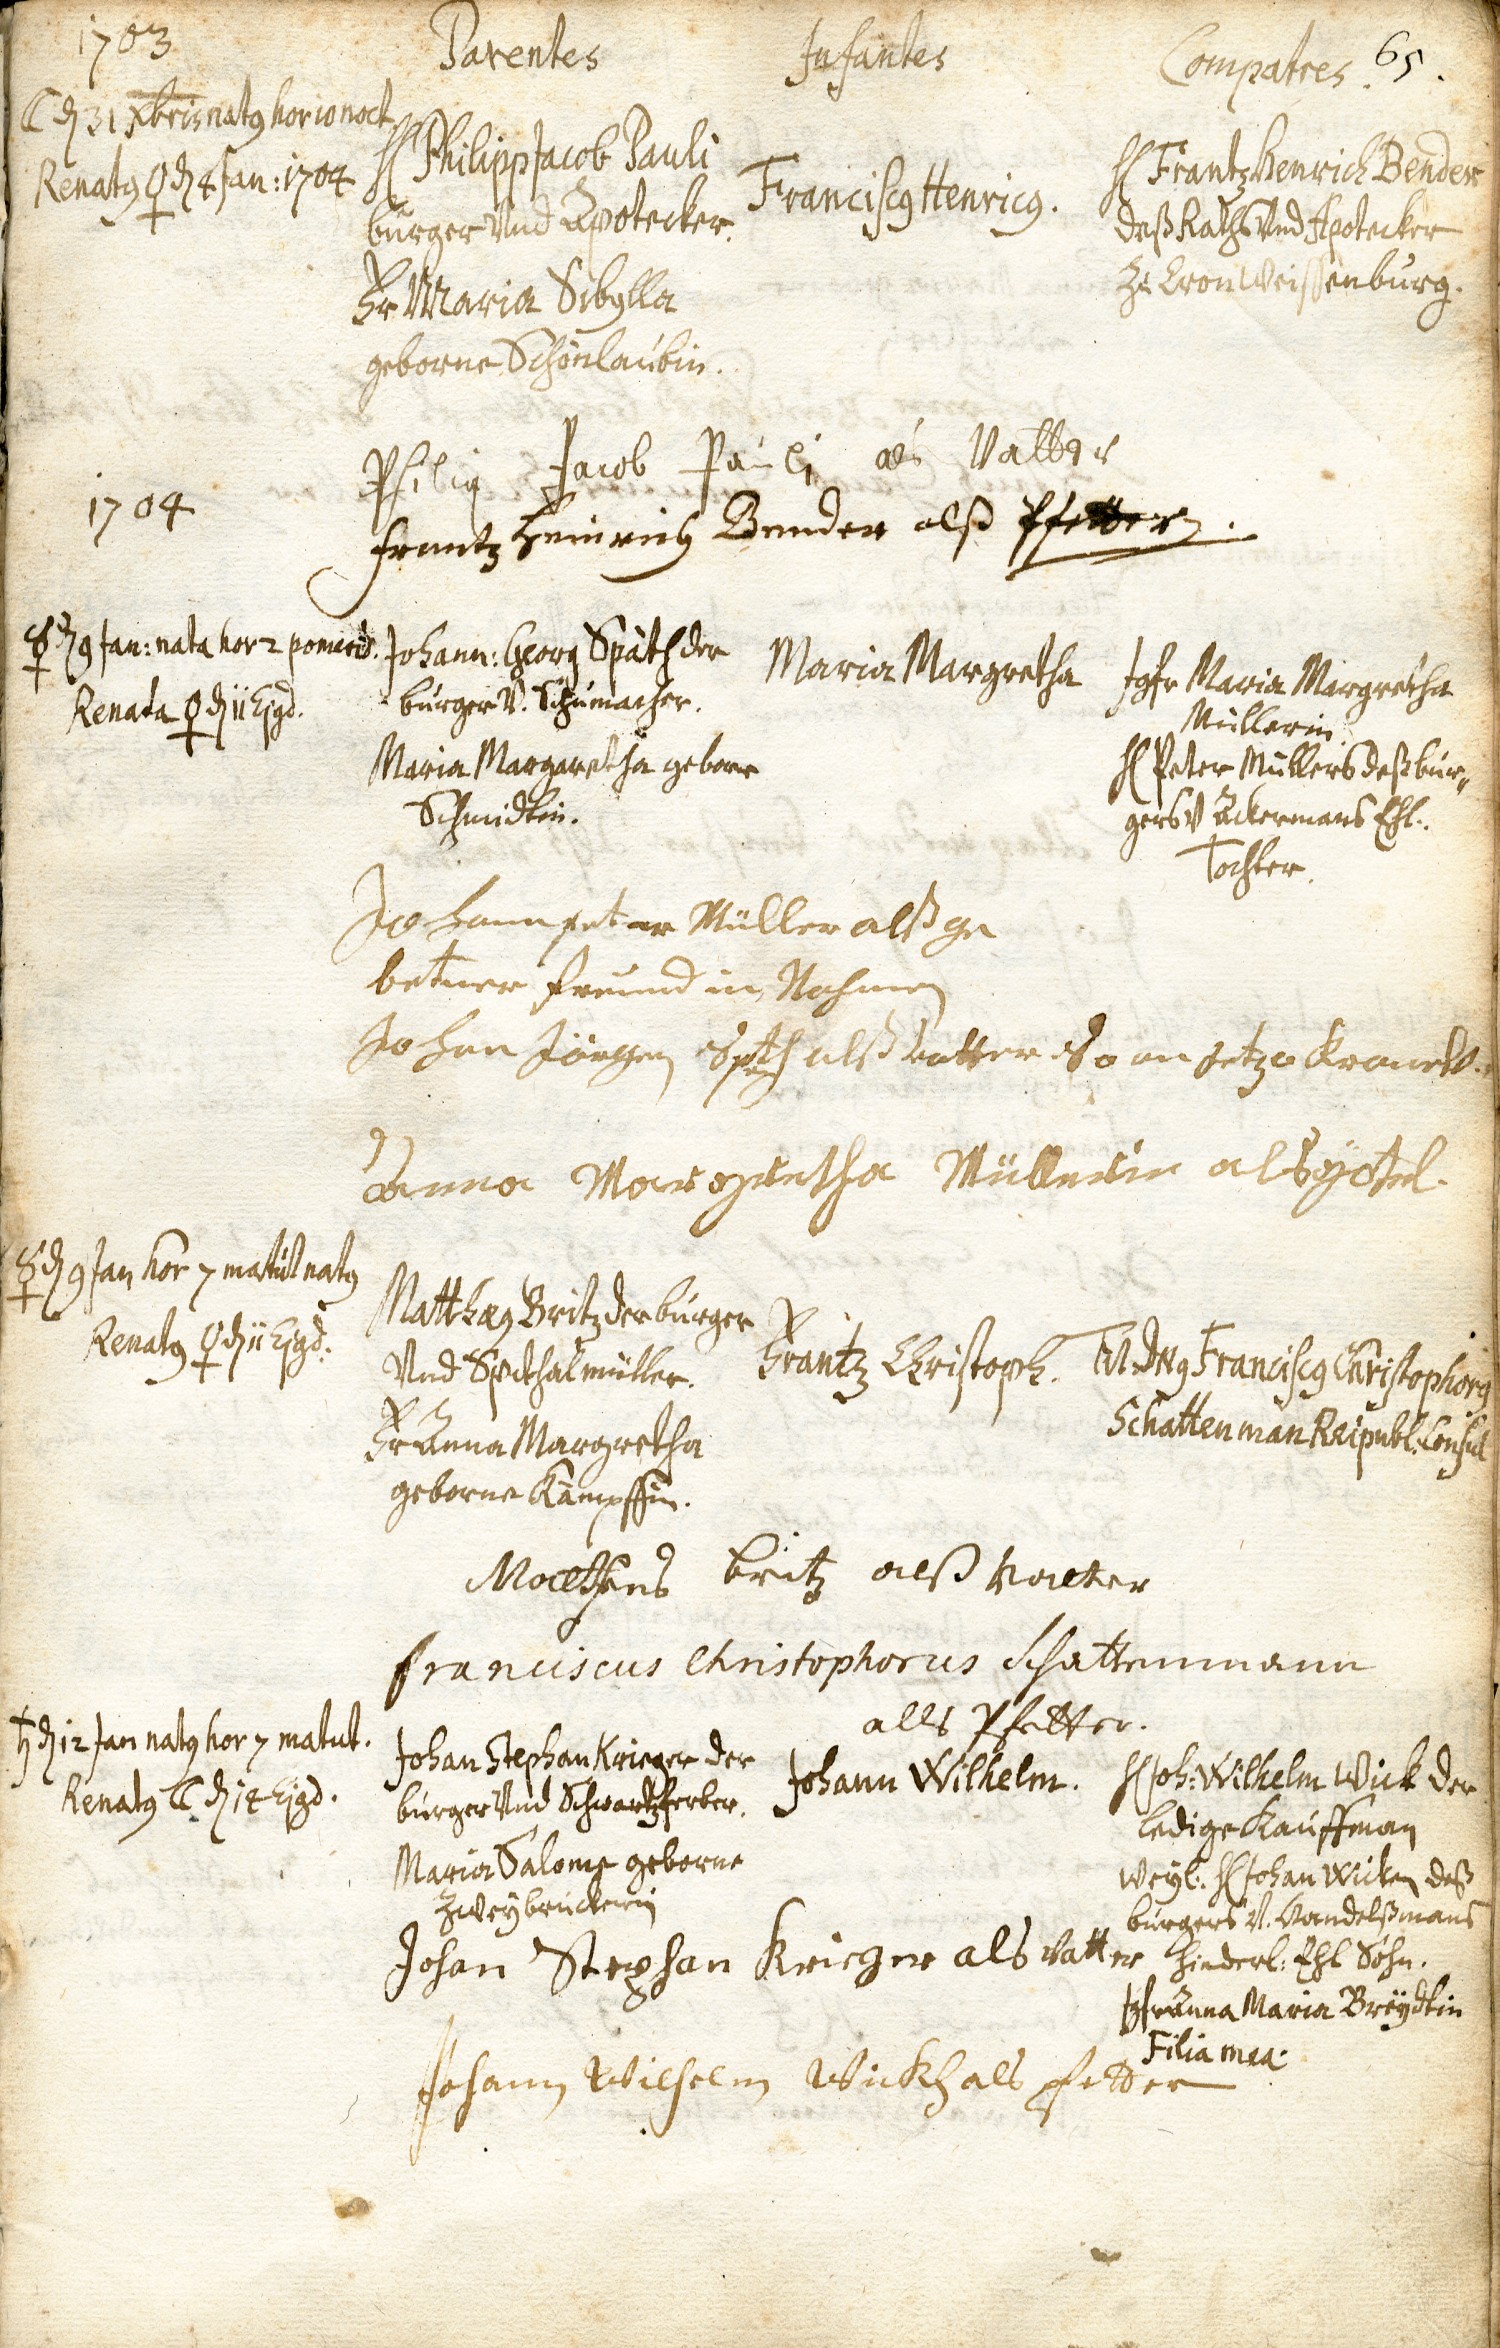 1703 Parentes Infantes Compatres. 65.
☾ d 31 Xbris natq hor 10 noct.
Renatq ♀ d 4 Jan: 1704
H Philipp Jacob Pauli
burger Und Apotecker.
Fr Maria Sibylla
geborne Schönlaubin.
Franciscq Henricq.
H Frantz Henrich Bender
deß Raths Und Apotecker
Zu Cron Weissenburg.
Philip Jacob Pauli als Vatter
1704
frantz Heinrich Bender alß Pfetter.
☿ d 9 Jan: nata hor 2 pomerid.
Renata ♀ d 11 Ejgd.
Johann: Georg Späth der
burger V. Schumacher.
Maria Margaretha geborne
Schmidtin.
Maria Margretha
Jgfr Maria Margretha
Müllerin
H Peter Müllers deß bur„
gers V Ackermans Ehl.
Tochter.
Johann peter Müller alß ge
betner freund in Nahmen
Johan Jörgen Späth alß vatter So an jetzo kranck.
Anna Margretha Müllerin als götel.
☿ d 9 Jan hor 7 matut natq
Renatq ♀ d 11 Ejgd.
Matthæq Britz der burger
Und Spithalmüller.
Fr Anna Margretha
geborne Kämpffin.
Frantz Christoph.
Dnq Franciscq Christophorq
Schattenman Reipubl. Consul
Mattheus britz alß vatter
Franciscus Christophorus Schattenmann
alls Pfetter.
♄ d 12 Jan natq hor 7 matut.
Renatq ☾ d 14 Ejgd.
Johan Stephan Krieger der
burger Und Schwartzferber.
Maria Salome geborne
Zweybruckerin
Johann Wilhelm.
H Joh: Wilhelm Wick der
ledige Kauffman
Weyl. H Johan Wicken deß
burgers V. Handelßmans
hinderl: Ehl Sohn.
Jgfr Anna Maria Breydtin
Filia mea.
Johan Stephan Krieger als vatter
Johann Wilhelm Wickh als pfetter